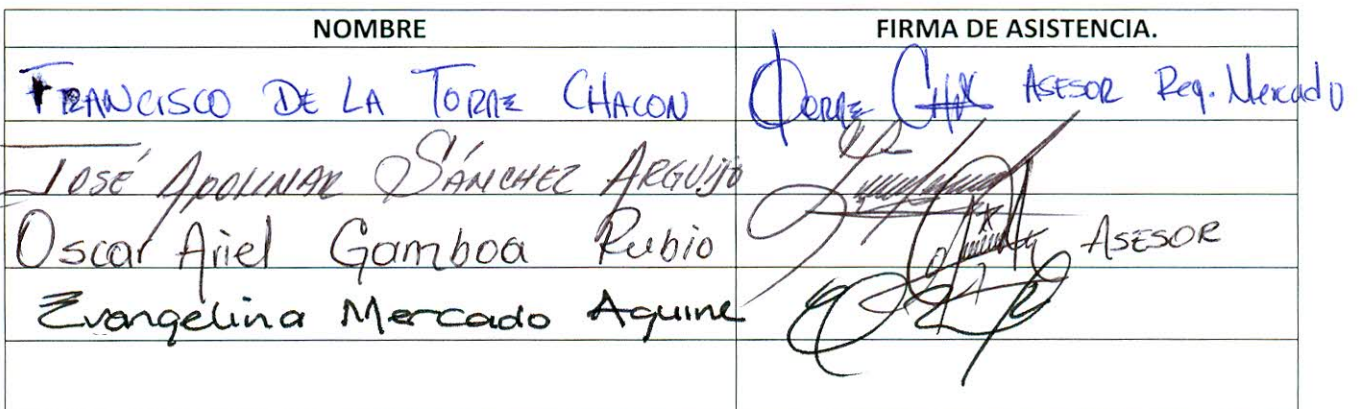 NOMBRE FIRMA DE ASISTENCIA.
FRANCISCO DE LA TORRE CHACON ASESOR Reg. Mercado
JOSÉ APOLINAR SÁNCHEZ ARGUIJO
Oscar Ariel Gamboa Rubio ASESOR
Evangelina Mercado Aguirre